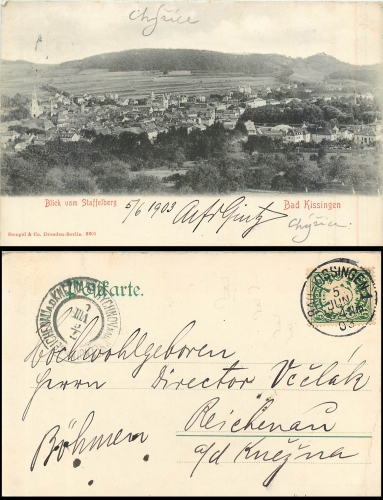 Chýšice
Blick vom Staffelberg
5/6 1903
Bad Kissingen
Chýšice
Stengel & Co. Dresden-Berlin
Postkarte.
KISSINGEN
5
JUN
03
Hochwohlgeboren
Herrn Director Včelák
Reichenau
Böhmen
a/d Kněžna